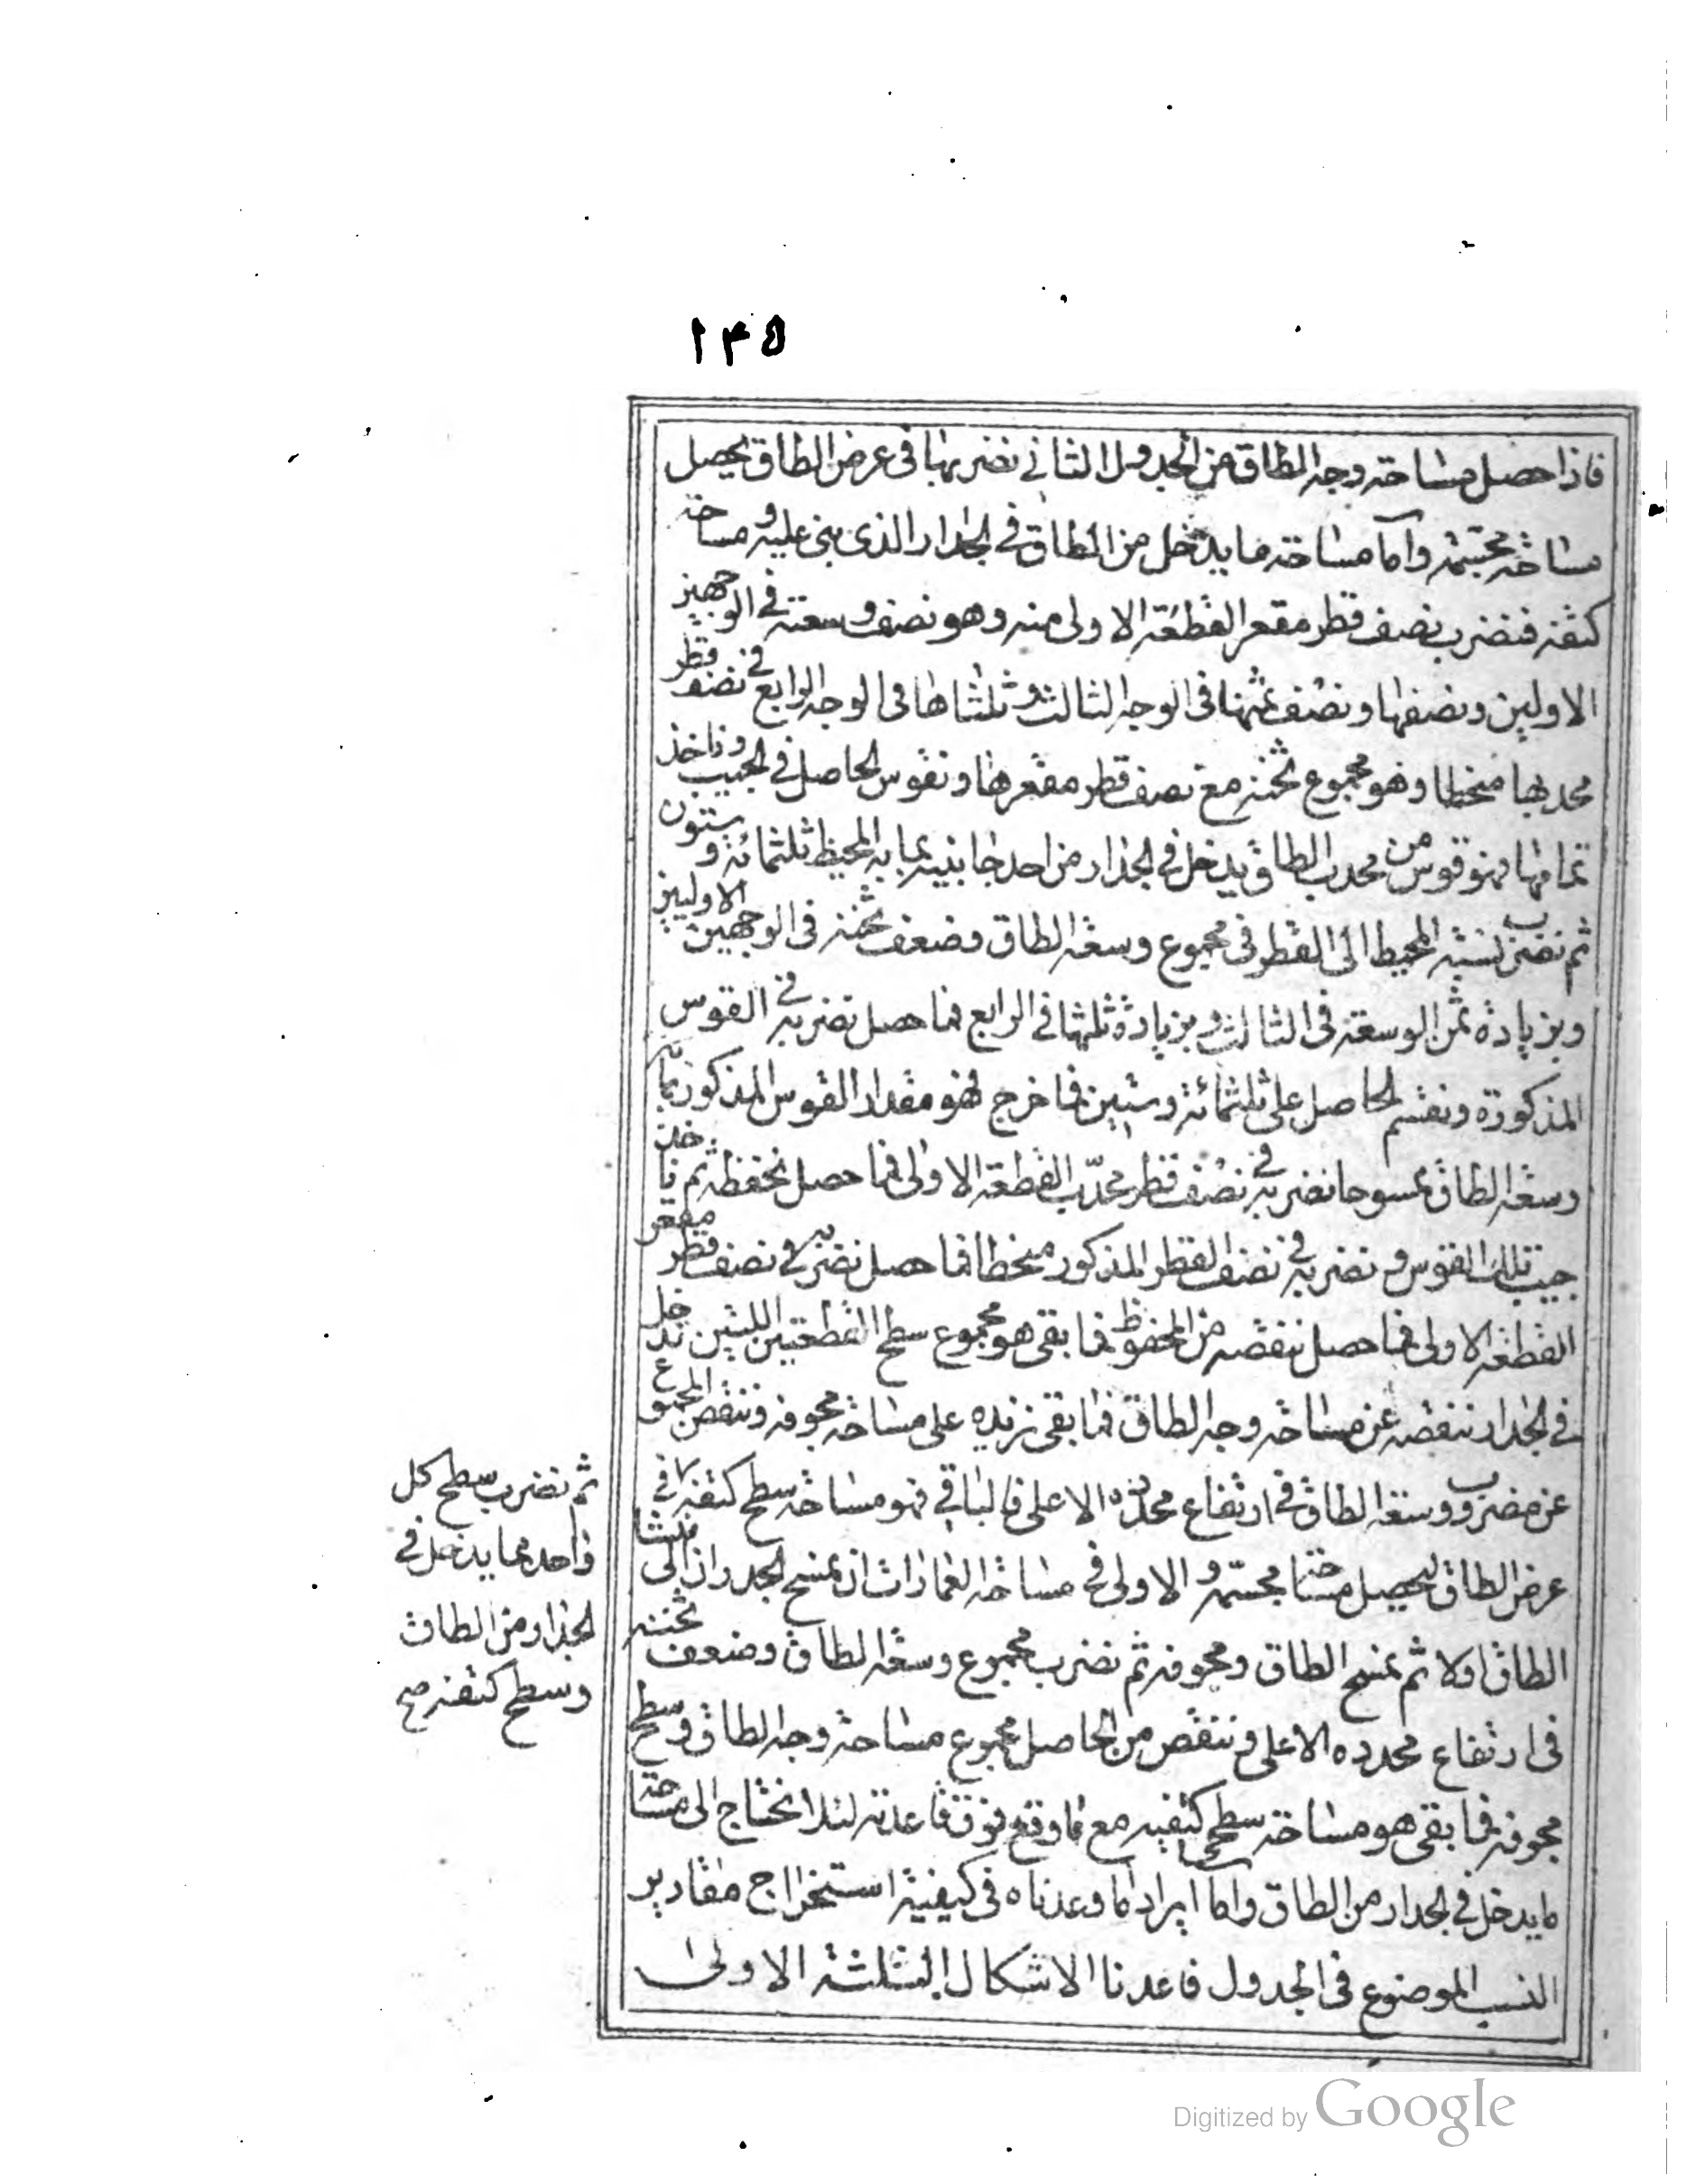 ١٣٥
فاذا حصل مساحة وجه الطاق من الجدول الثاني نضربها فى عرض الطاق يحصل
مساحة مجسّمه وامّا مساحة ما يدخل من الطاق في الجدار الذى بنى عليه و مساحة
كتفه فنضرب نصف قطر مقعر القطعة الاولى منه وهو نصف وسعته في الوجهين
الاولين ونصفها ونصف ثمنها فى الوجه الثالث و ثلثاها فى الوجه الرابع في نصف قطر
محدبها منحطا وهو مجموع ثخنه مع نصف قطر مقعرها ونقوس الحاصل في الجيب وناخذ
تمامها فهو قوس من محدب الطاق يدخل في الجدار من احد جانبيه بما به المحيط ثلثمائة و ستون
ثم نضرب نسبة المحيط الى القطر فى مجموع وسعة الطاق وضعف ثخنه فى الوجهين الاوليين
وبزيادة ثمن الوسعة فى الثالث و بزيادة ثلثها في الرابع فما حصل نضربه في القوس
المذكورة ونقسم الحاصل على ثلثمائة وستين فما خرج فهو مقدار القوس المذكور بما به
وسعة الطاق ممسوحا نضربه في نصف قطر محدّب القطعة الاولى فما حصل نحفظه ثم ناخذ
جيب تلك القوس و نضربه في نصف القطر المذكور منحطا فما حصل نضربه في نصف قطر مقعر
القطعة الاولى فما حصل ننقصه من المحفوظ فما بقى هو مجموع سطح القطعتين اللتين تدخل
في الجدار ننقصه عن مساحة وجه الطاق فما بقى نزيده على مساحة مجوفه وننقص المجموع
عن مضروب وسعة الطاق في ارتفاع محدبه الاعلى فالباقي فهو مساحة سطح كتفه في
عرض الطاق ليحصل مساحتا مجسمه و الاولى في مساحة العمارات ان نمسح الجدران الى منشا
الطاق اولا ثم نمسح الطاق ومجوفه ثم نضرب مجموع وسعة الطاق وضعف ثخنه
فى ارتفاع محدبه الاعلى و ننقص من الحاصل مجموع مساحة وجه الطاق و سطح
مجوفه فما بقى هو مساحة سطحى كتفيه مع ما وقع فوق قاعدته لئلا نحتاج الى مساحة
ما يدخل في الجدار من الطاق وامّا ايراد ما وعدناه فى كيفية استخراج مقادير
النسب الموضوع فى الجدول فاعدنا الاشكال الثلثة الاولى
ثم نضرب سطح كل
واحد مما يدخل في
الجدار من الطاق
وسطح كتفه صح
Digitized by Google